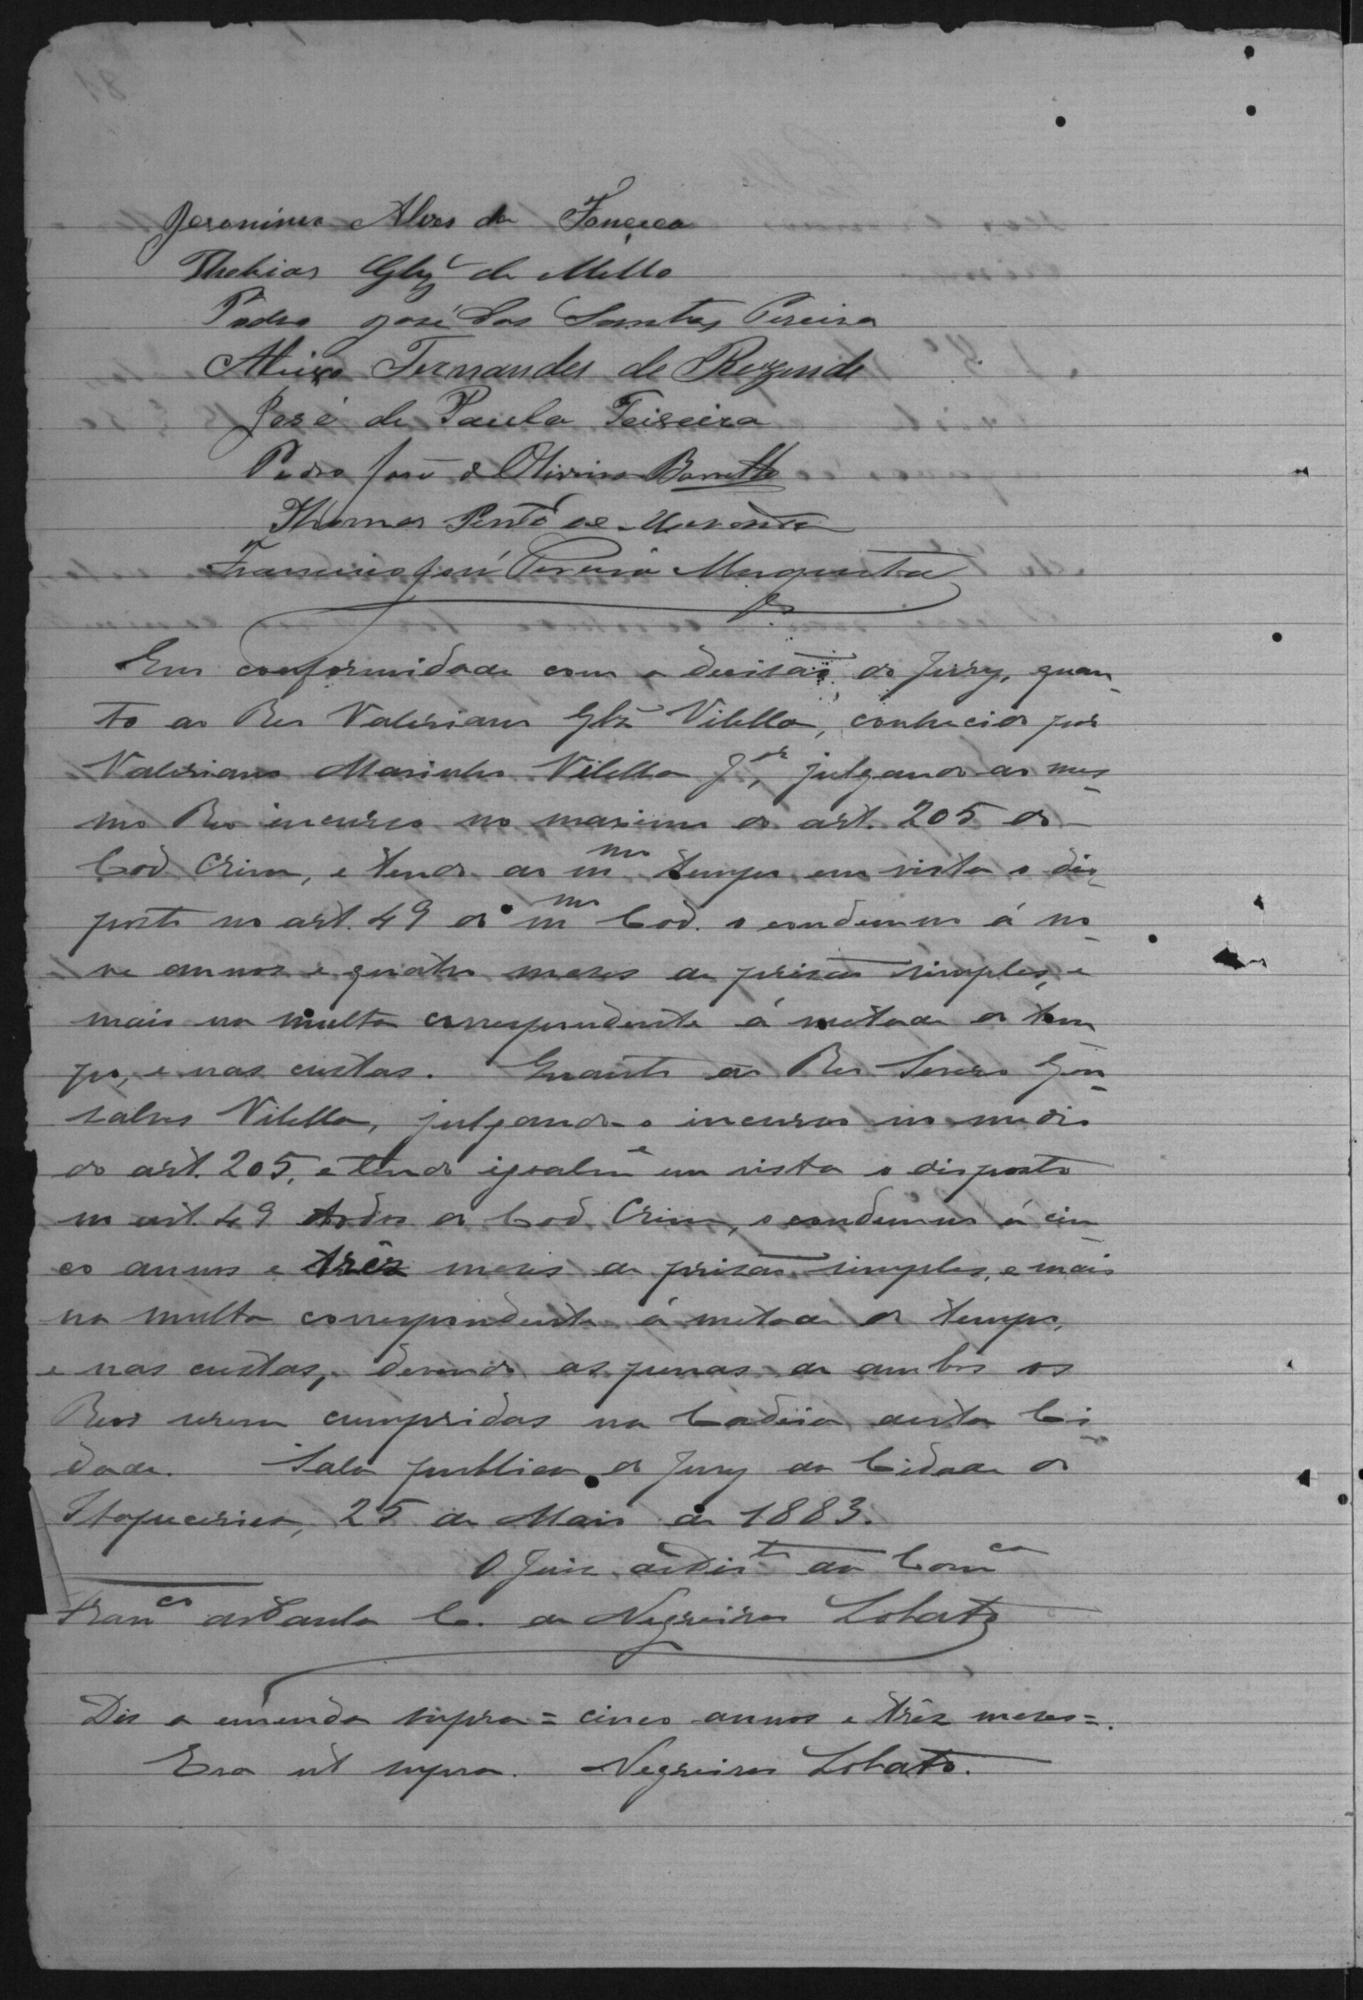 Jeronimo Alves da Fonceca
Thobias Glz de Mello
Pedro José dos Santos Pereira
Aleixo Fernandes de Rezende
José de Paula Teixeira
Pedro José d Oliveira Barretto
Thomas Pinto de
Francisco José Pereira Mesquita
Em conformidade com a decisão do Jury, quan-
to ao Reo Valeriano Glz Vilella, conhecido por
Valeriano Marinho Vilella Jor, julgando ao mes-
mo Reo incurso no maximo do art. 205 do
Cod Crim, e tendo ao mmo tempo em vista o dis-
posto no art. 49 do mmo Cod. o condemno á no-
ve annos e quatro meses de prisão simples, e
mais na multa correspondente á metade do tem-
po, e nas custas. Quanto ao Reo Severo Gon-
salves Vilella, julgando-o incurso no medio
do art. 205, e tendo igualme em vista o disposto
no art. 49 todos do Cod Crim, o condemno á cin-
co annos e três meses de prisão simples, e mais
na multa correspondente á metade do tempo,
e nas custas, devendo as penas de ambos os
Reos serem cumpridas na Cadeia desta Ci-
dade. Sala publica do Jury da Cidade de
Itapecerica, 25 de Maio de 1883.
O Juiz de Dirto da Comca
Franco de Paula C. de Negreiros Lobato
Diz a emenda supra = cinco annos e três meses =.
Era ut supra. Negreiros Lobato.